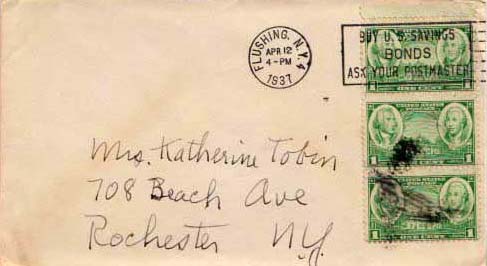 FLUSHING, N.Y. 4
APR 12
4-PM
1937
BUY U.S. SAVINGS
BONDS
ASK YOUR POSTMASTER
ONE CENT
UNITED STATES
POSTAGE
1 1
ONE CENT
UNITED STATES
POSTAGE
1 1
ONE CENT
Mrs. Katherine Tobin
708 Beach Ave
Rochester N.Y.